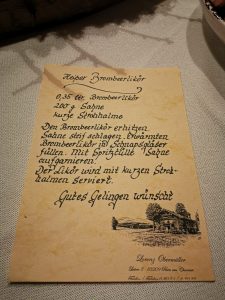 Heißer Brombeerlikör
0,35 ltr. Brombeerlikör
200 g Sahne
kurze Strohhalme
Den Brombeerlikör erhitzen.
Sahne steif schlagen. Erwärmten
Brombeerlikör in Schnapsgläser
füllen. Mit Spritztülle Sahne
aufgarnieren.
Der Likör wird mit kurzen Stroh-
halmen serviert.
Gutes Gelingen wünscht
Lorenz Obermüller